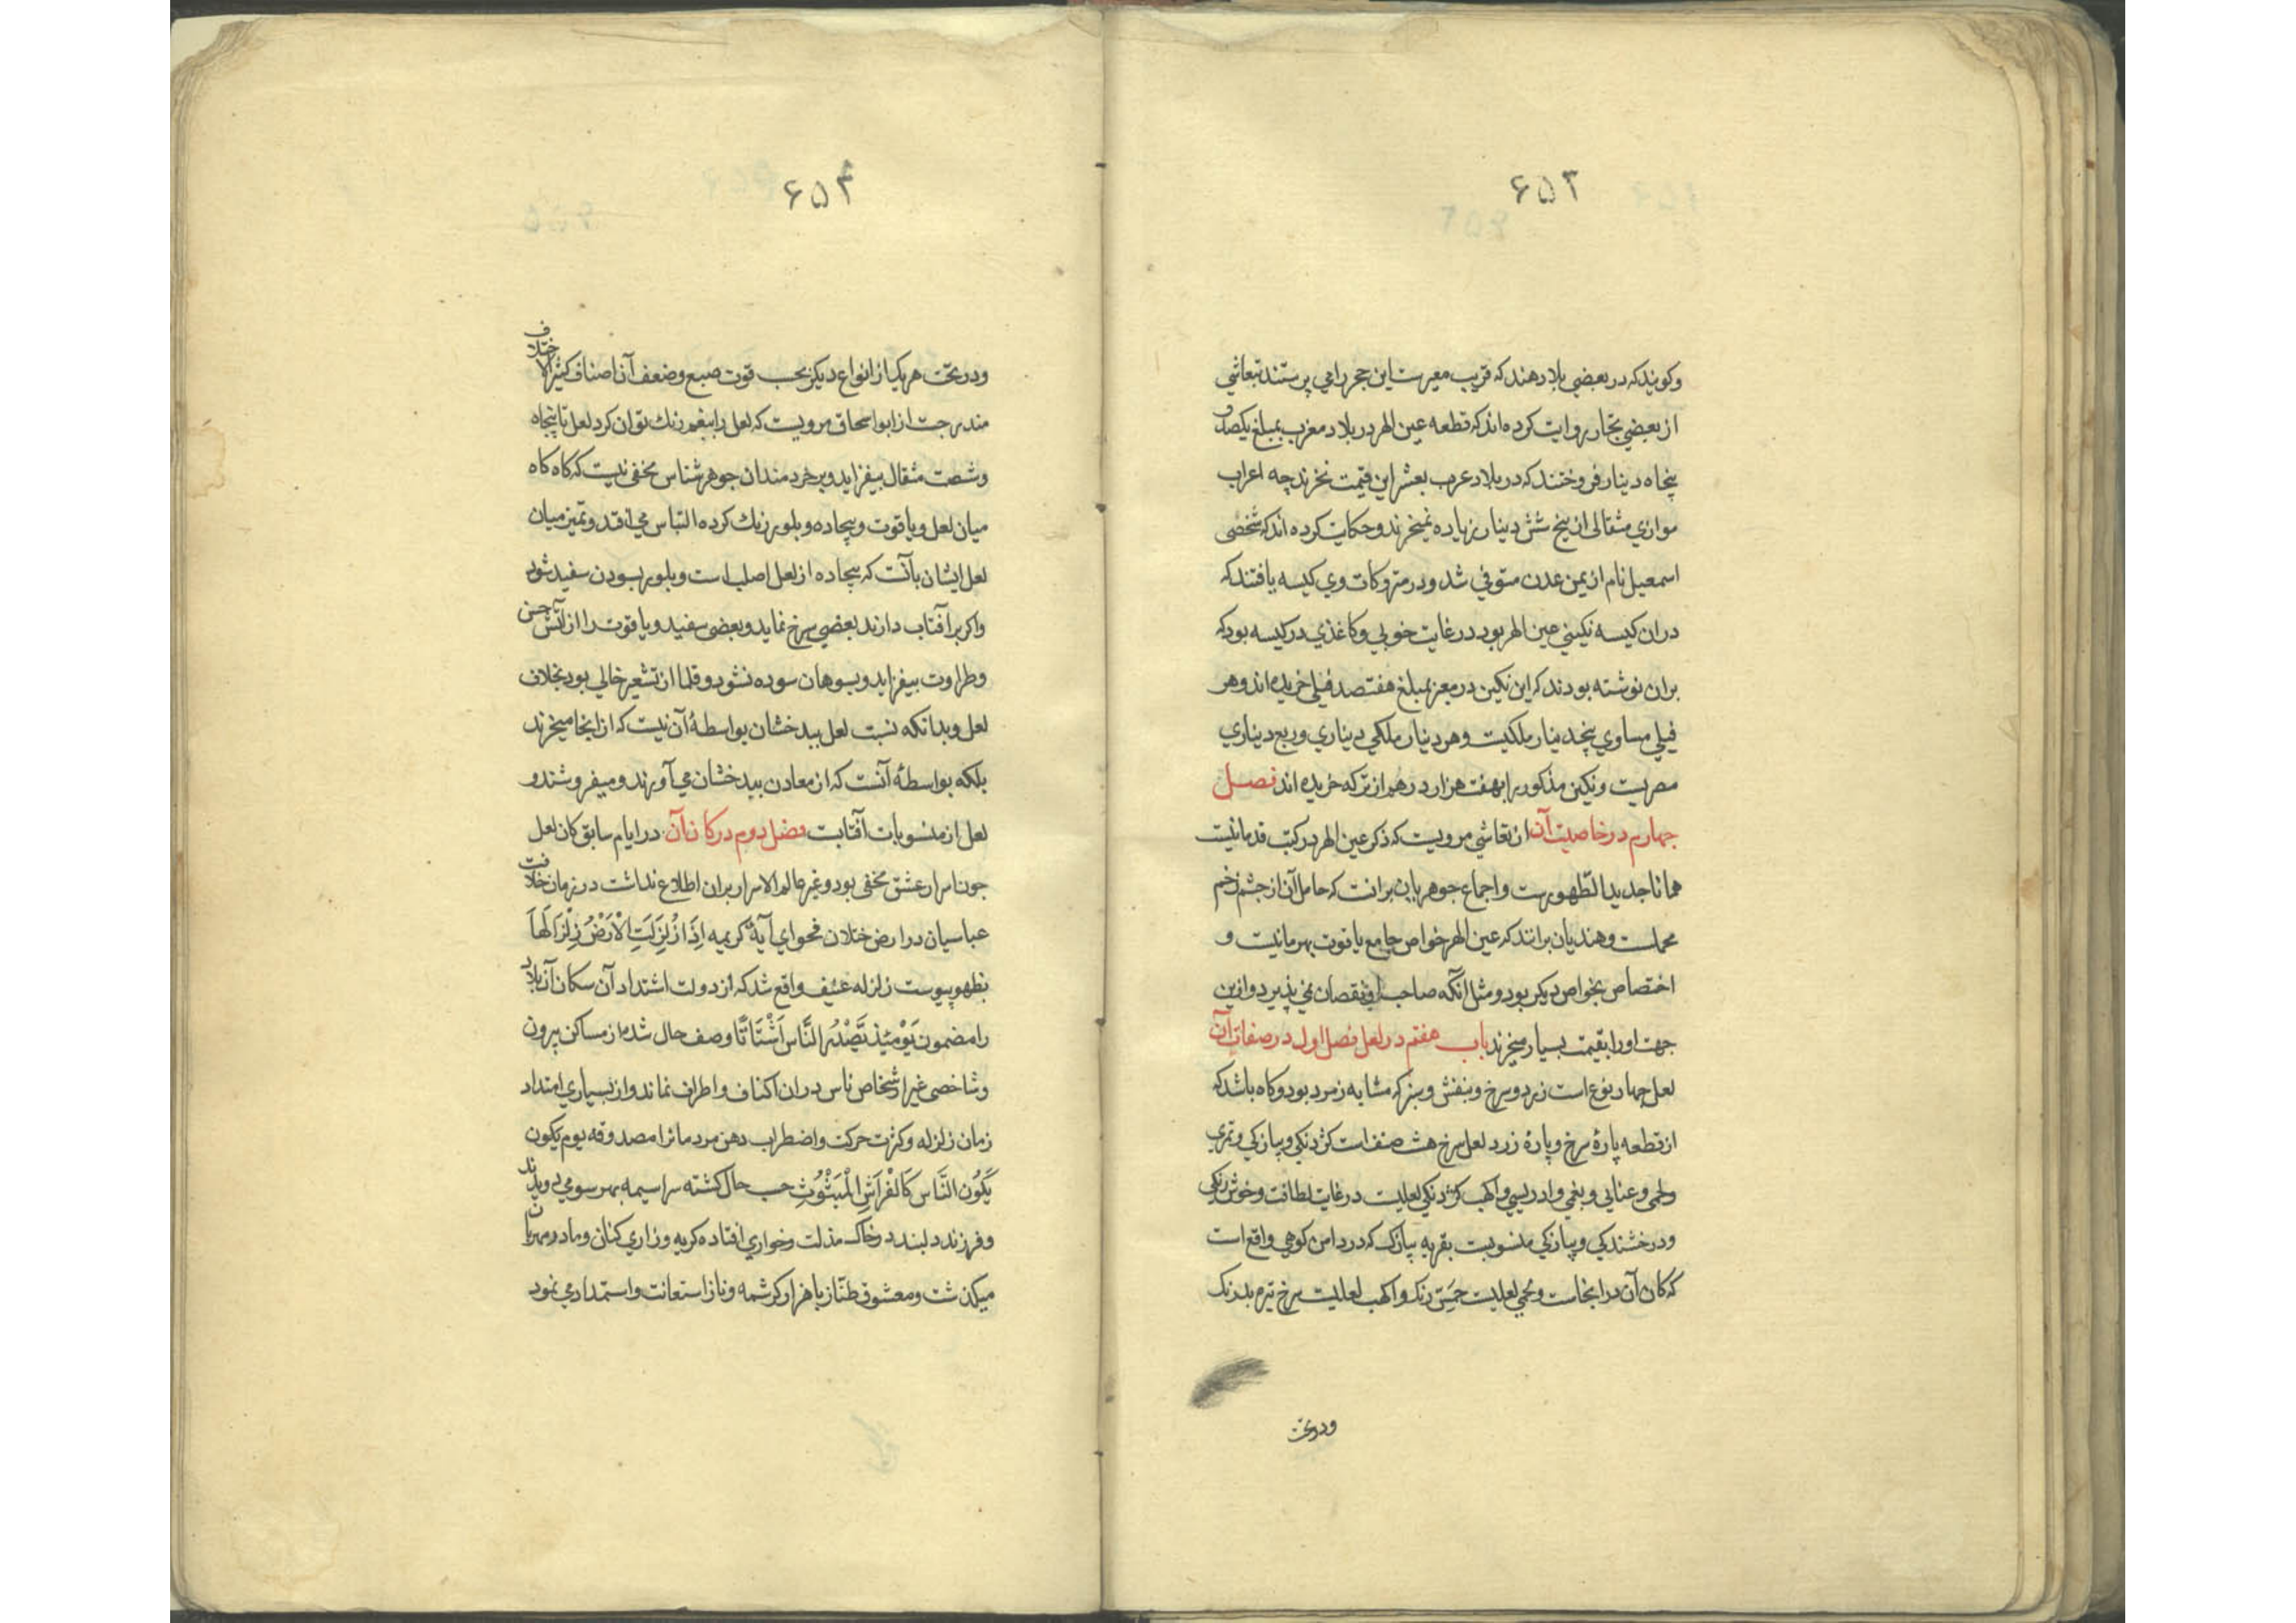 ۶۵۳
وکویند که در بعضی بلاد هند که قریب معبرست این حجر را می پرستند تیفاشی
از بعضی تجار روایت کرده اند که قطعه عین الهر در بلاد مغرب بمبلغ یکصد و
پنجاه دینار فروختند که در بلاد عرب بعشر این قیمت نخرند چه اعراب
موازی مثقالی از پنج شش دینار زیاده نمیخرند و حکایت کرده اند که شخصی
اسمعیل نام از یمن عدن متوفی شد و در متروکات وی کیسه یافتند که
دران کیسه نکینی عین الهر بود در غایت خوبی و کاغذی در کیسه بود که
بران نوشته بودند که این نکین در معبر بمبلغ هفتصد فیلی خریده اند و هر
فیلی مساوی پنجدینار ملکیت و هر دینار ملکی دیناری و ربع دیناری
مصریت و نکین مذکور را بهفت هزار درهم از ترکه خریده اند فصل
چهارم در خاصیت آن از تیفاشی مرویست که ذکر عین الهر در کتب قدما نیست
همانا جدید الظهورست و اجماع جوهریان برانست که حامل آن از چشم زخم
محملست و هندیان برانند که عین الهر خواص جامع یاقوت بهرمانیت و
اختصاص بخواص دیکر بود و مثل آنکه صاحب او نقصان نمی پذیرد و ازین
جهت اورا بقیمت بسیار میخرند باب هفتم در لعل فصل اول در صفات آن
لعل چهار نوع است زرد و سرخ و بنفش و سبز که مشابه زمرد بود و کاه باشد که
از قطعه پارهٔ سرخ و پارهٔ زرد لعل سرخ هشت صنف است کژدنکی و پیازکی و تمری
و لحمی و عنابی و بقمی و ادریسی و اکهب کژدنکی لعلیت در غایت لطافت و خوش رنکی
و درخشندکی و پیازکی منسوبست بقریه پیازک که در دامن کوهی واقع است
که کان آن در انجاست و لحمی لعلیت رنک و اکهب لعلیت سرخ تیره بدرنک
ودرتحت
۶۵۴
و در تحت هر یک از انواع دیکر بحسب قوت صبغ و ضعف آن اصناف کثیر الاختلاف
مندرجست از ابو اسحاق مرویست که لعل را ببقم رنک توان کرد لعل تا پنجاه
و شصت مثقال بیفزاید و بر خردمندان جوهر شناس مخفی نیست که کاه کاه
میان لعل و یاقوت و بیجاده و بلور رنک کرده التباس می افتد و تمیز میان
لعل ایشان بآنست که بیجاده از لعل اصلب است و بلور بسودن سفید شود
و اکر برآفتاب دارند بعضی سرخ نماید و بعضی سفید و یاقوت را از آتش حسن
و طراوت بیفزاید و بسوهان سوده نشود و قلما از تشعیر خالی بود بخلاف
لعل و بدانکه نسبت لعل ببدخشان بواسطهٔ آن نیست که از انجا میخرند
بلکه بواسطهٔ آنست که از معادن ببدخشان می آورند و میفروشند و
لعل از منسوبات آفتابت فصل دوم در کان آن در ایام سابق کان لعل
جون اسرار عشق مخفی بود و غیر عالم الاسرار بران اطلاع نداشت در زمان خلافت
عباسیان در ارض ختلان فحوای آیهٔ کریمه اِذَا زُلْزِلَتِ الْاَرْضُ زِلْزَالَهَا
بظهور پیوست زلزله عنیف واقع شد که از دولت اشتداد آن سکان آن بلاد
را مضمون يَوْمَئِذٍ يَصْدُرُ النَّاسُ اَشْتَاتًا وصف حال شده از مساکن بیرون
و شاخصی غیر اشخاص ناس دران اکناف و اطراف نماند و از بسیاری امتداد
زمان زلزله و کثرت حرکت و اضطراب دهن مردمانرا مصدوقه یوم یکون
يَكُونُ النَّاسُ كَالْفَرَاشِ الْمَبْثُوثِ حسب حال کشته سراسیمه بهر سو می دویدند
و فرزند دلبند در خاک مذلت و خواری افتاده کریه و زاری کنان و مادر مهربان
میکذشت و معشوق طناز با هزار کرشمه و ناز استعانت و استمداد می نمود